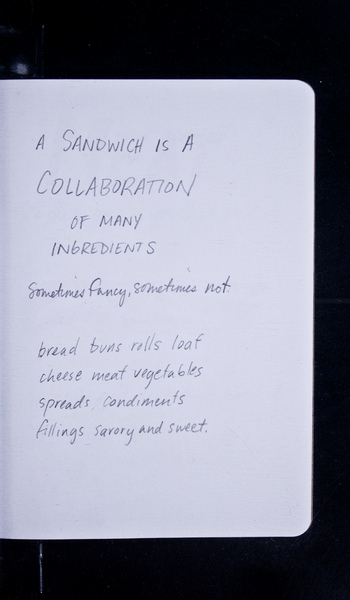 A SANDWICH IS A
COLLABORATION
OF MANY
INGREDIENTS
sometimes fancy, sometimes not.
bread buns rolls loaf
cheese meat vegetables
spreads condiments
fillings savory and sweet.